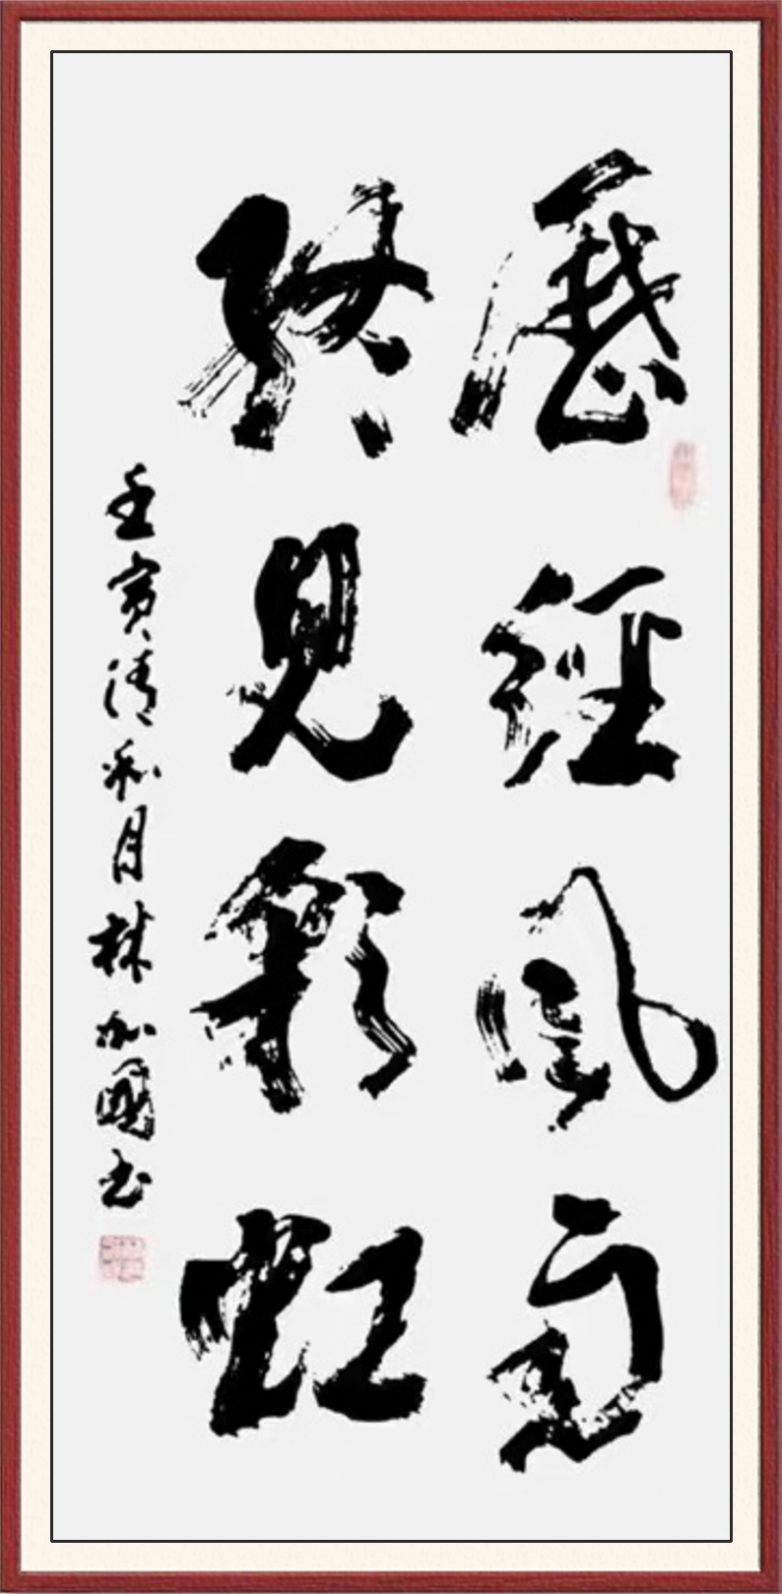 歷經風雨
終見彩虹
壬寅清和月林加國书